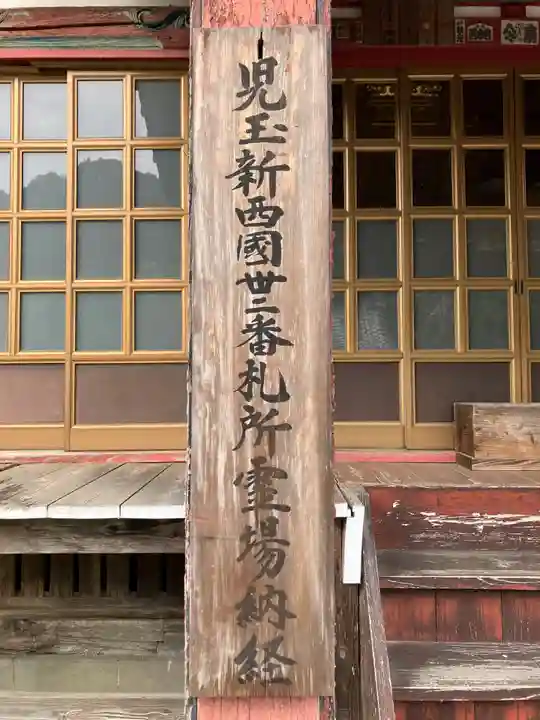 児玉新西國卅二番札所霊場納経